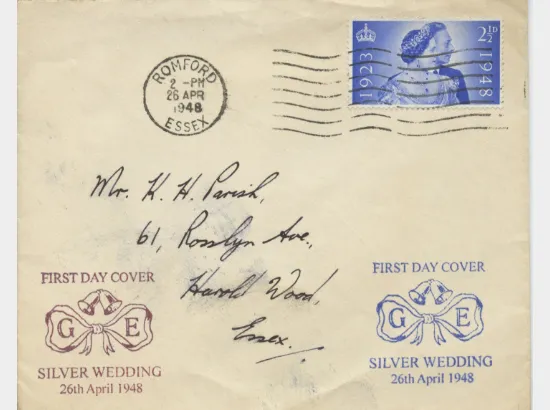 1923
2½D
1948
ROMFORD
2 - PM
26 APR
1948
ESSEX
Mr. K. H. Parish,
61, Rosslyn Ave.,
Harold Wood,
Essex.
FIRST DAY COVER
G E
SILVER WEDDING
26th April 1948
FIRST DAY COVER
G E
SILVER WEDDING
26th April 1948